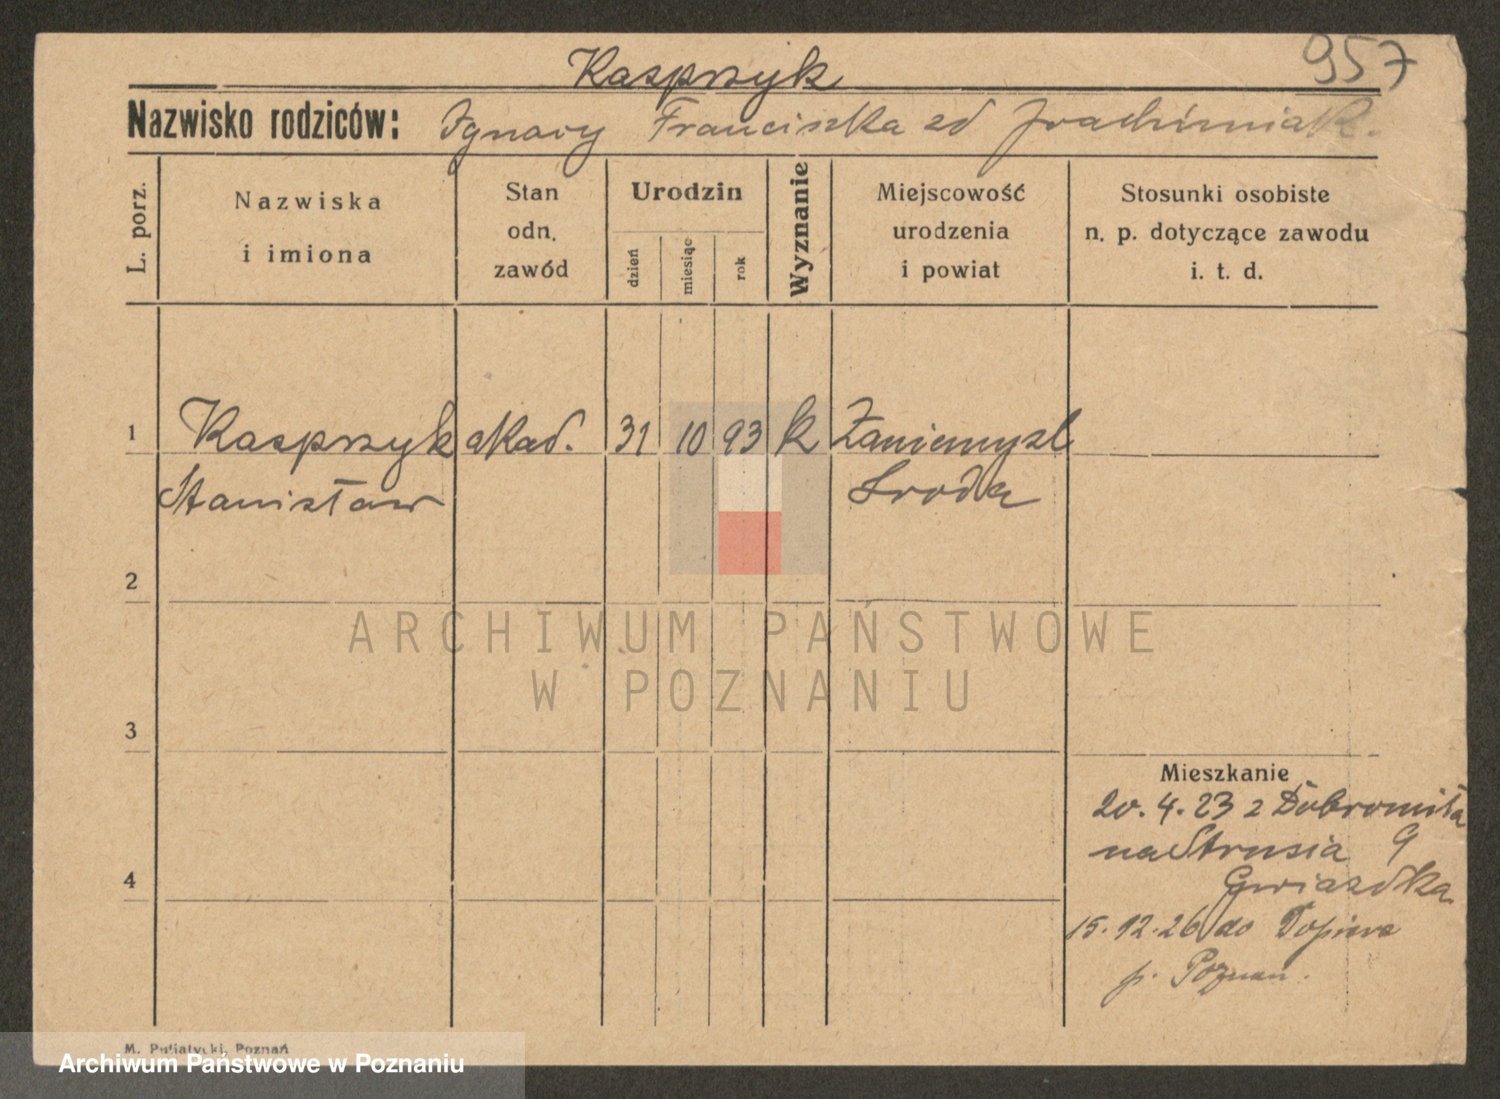 957
Kasprzyk
Nazwisko rodziców: Ignacy Franciszka zd
L. porz.
Nazwiska i imiona
Stan odn. zawód
Urodzin
dzień miesiąc rok
Wyznanie
Miejscowość urodzenia i powiat
Stosunki osobiste n. p. dotyczące zawodu i. t. d.
1 Kasprzyk akad. 31 10 93 k Zaniemyśl
Stanisław Środa
2
ARCHIWUM PAŃSTWOWE
W POZNANIU
3
Mieszkanie
20. 4. 23 z Dobromiła
na Strusia 9
Gwiazdka
4
15. 12. 26 do
p. Poznań.
M. Poznań
Archiwum Państwowe w Poznaniu